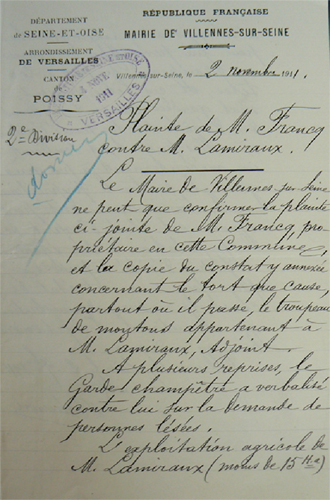 RÉPUBLIQUE FRANÇAISE
DÉPARTEMENT
de SEINE-ET-OISE
MAIRIE DE VILLENNES-SUR-SEINE
ARRONDISSEMENT
DE VERSAILLES
CANTON
POISSY
1911
VERSAILLES
Villennes-sur-Seine, le 2 novembre 1911.
2e Division
Plainte de M. Francq
contre M. Lamiraux.
Le Maire de Villennes sur Seine
ne peut que confirmer la plainte
ci-jointe de M. Francq, pro-
priétaire en cette Commune,
et la copie du constat y annexée
concernant le tort que cause,
partout où il passe, le troupeau
de moutons appartenant à
M. Lamiraux, Adjoint.
A plusieurs reprises, le
Garde champêtre a verbalisé
contre lui sur la demande de
personnes lésées.
L'exploitation agricole de
M. Lamiraux (moins de 15 Ha)